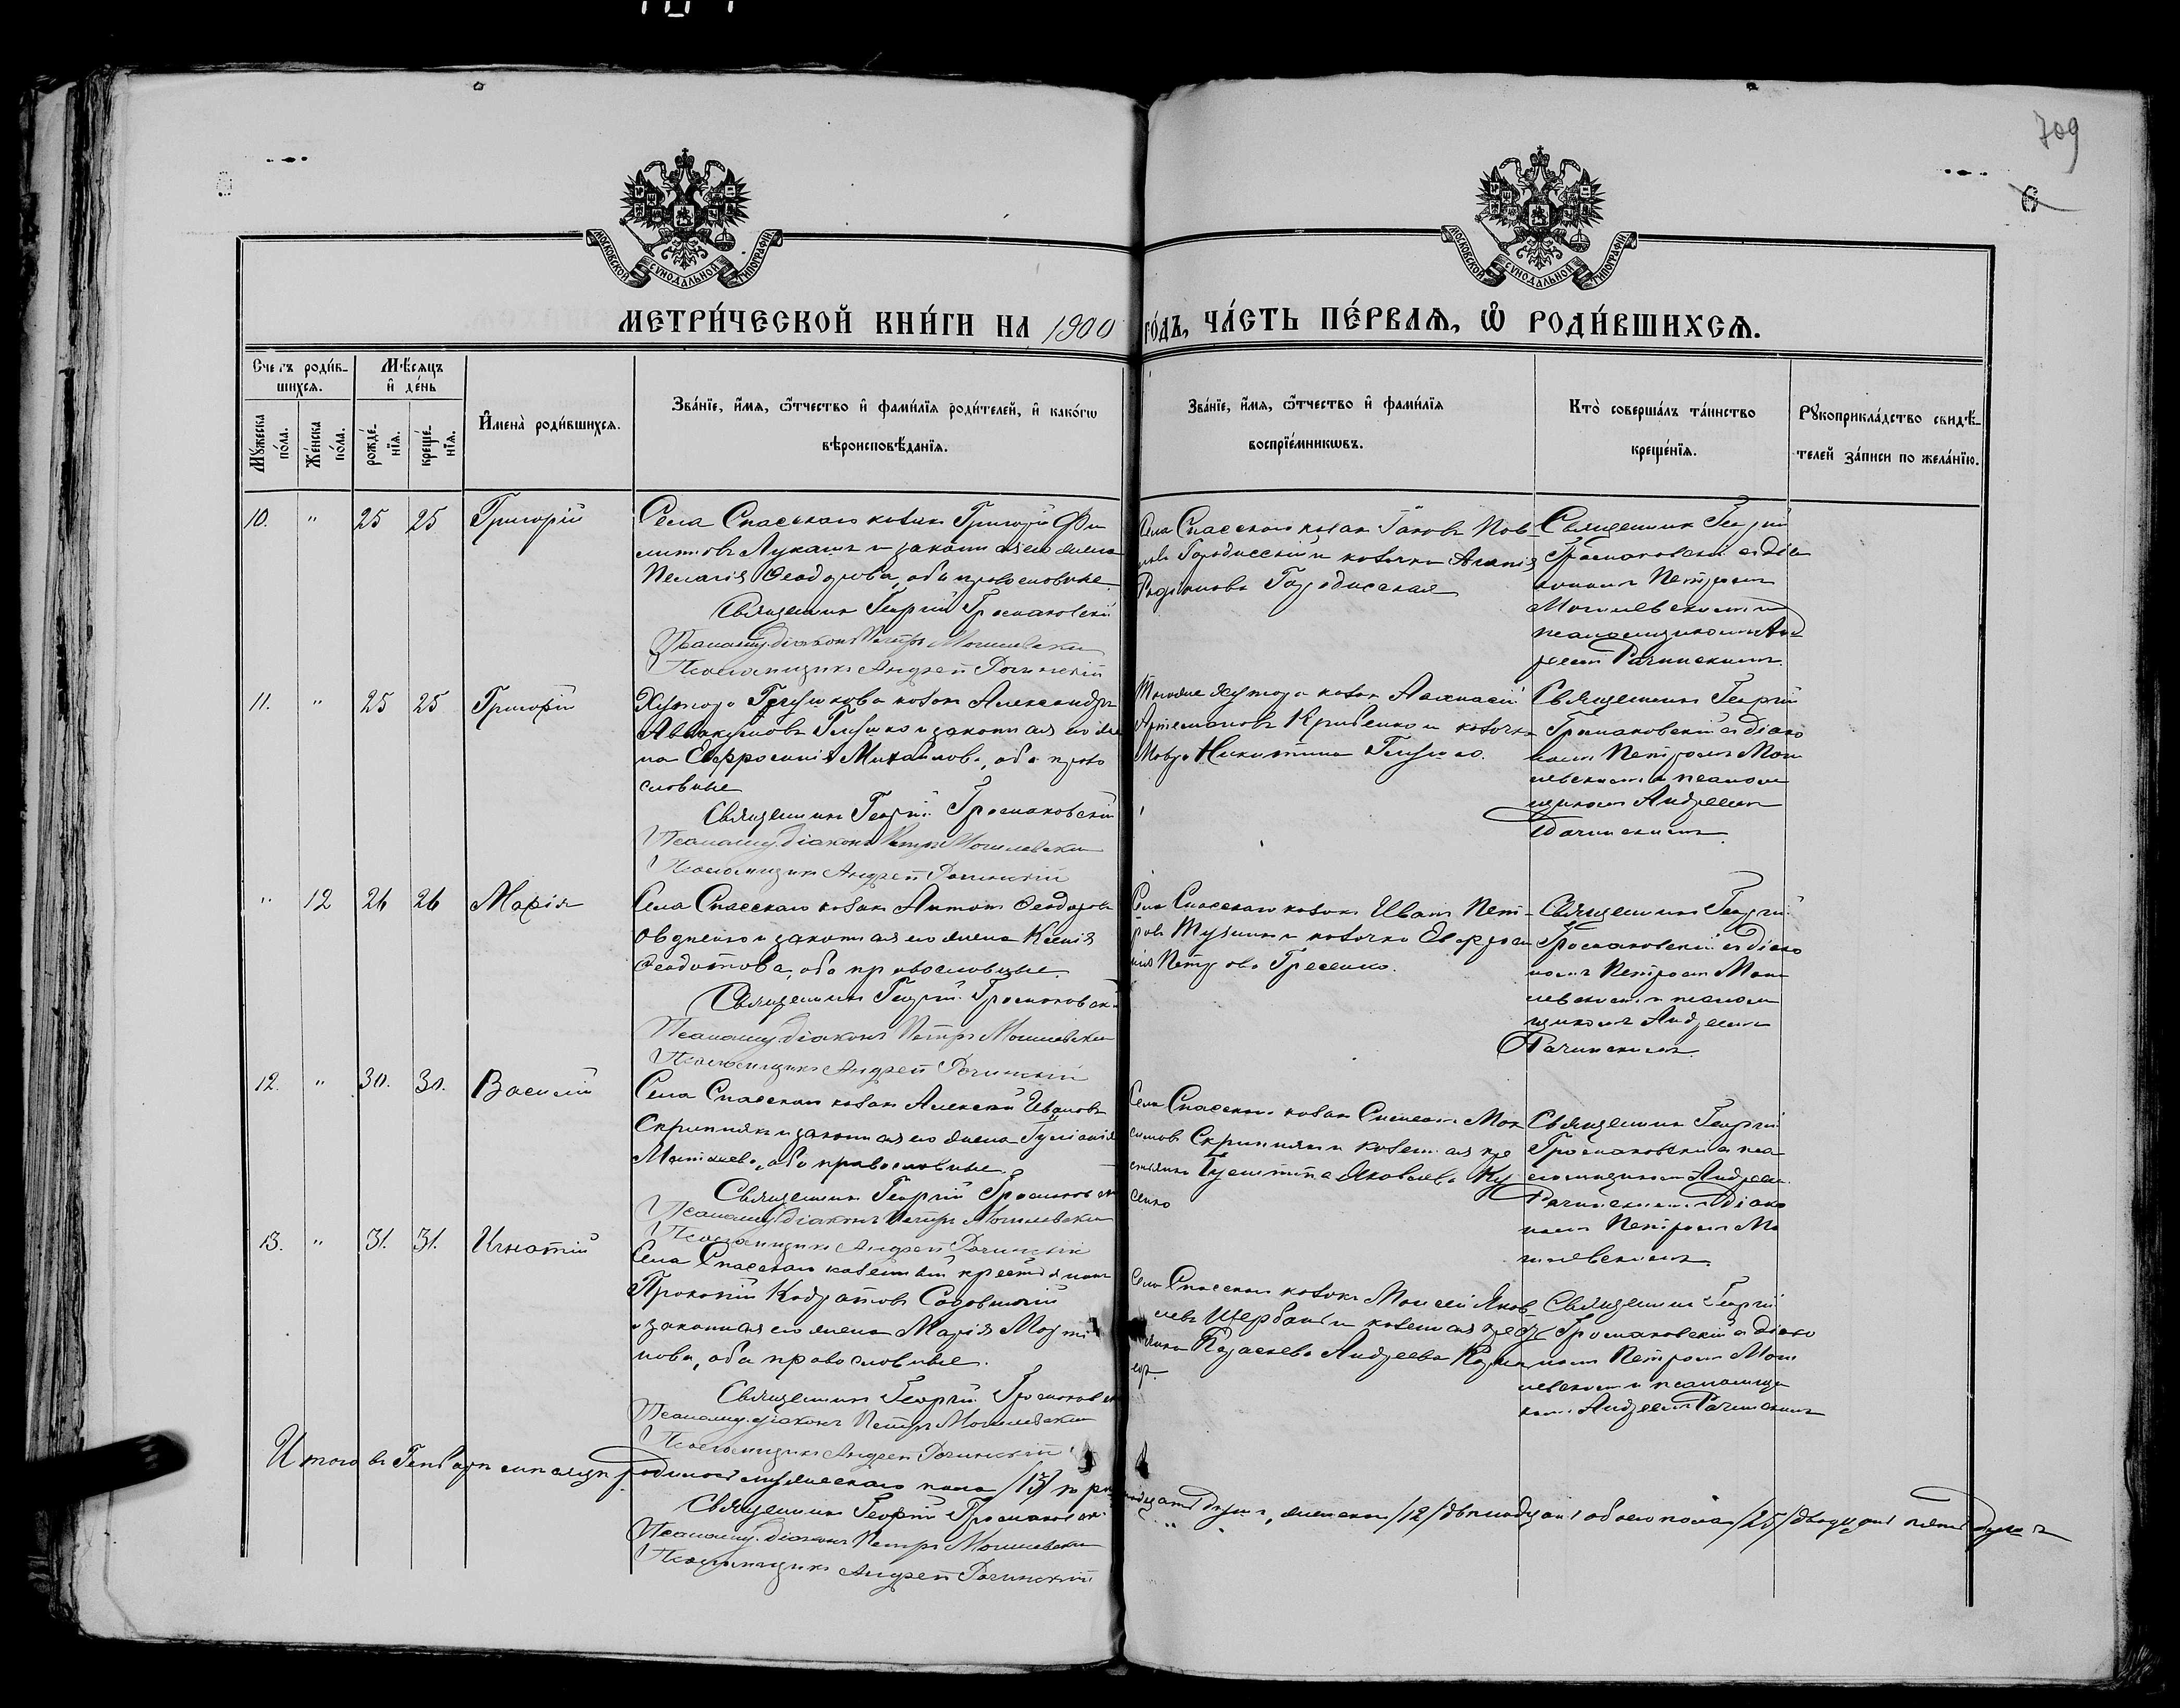 709
6
МОСКОВСКОЙ СУНОДАЛЬНОЙ ТИПОГРАФІИ
МОСКОВСКОЙ СУНОДАЛЬНОЙ ТИПОГРАФІИ
МЕТРИ́ЧЕСКОЙ КНИ́ГИ НА 1900 ГО́ДЪ, ЧА́СТЬ ПЕ́РВАѦ, Ѡ РОДИ́ВШИХСѦ.
Счетъ роди́в-
шихсѧ.
Мѣ́сѧцъ
и҆ де́нь
Мꙋ́жеска по́ла.
Же́нска по́ла.
рожде́-
нїѧ.
креще́-
нїѧ.
И҆мена̀ роди́вшихсѧ.
Зва́нїе, и҆́мѧ, ѻ҆́тчество и҆ фами́лїѧ роди́телей, и҆ како́гѡ
вѣроисповѣ́данїѧ.
Зва́нїе, и҆́мѧ, ѻ҆́тчество и҆ фами́лїѧ
воспрїе́мникѡвъ.
Кто̀ соверша́лъ та́инство
креще́нїѧ.
Рꙋкоприкла́дство свидѣ́-
телей за́писи по жела́нїю.
10. " 25 25 Григорій
Села Спасскаго козакъ Григорій Фи
липовъ Лукашъ и законная его жена
Пелагія Феодорова, оба православные
Священникъ Георгій Громаковскій
Псаломщ. діаконъ Петръ Могилевскій
Псаломщикъ Андрей Рачинскій
Села Спасскаго козакъ Іаковъ
Городисскій и козачка
Родіонова Городисская
Священникъ Георгій
Громаковскій съ діа
кономъ Петромъ
Могилевскимъ и
псаломщикомъ Анд
реемъ Рачинскимъ.
11. " 25 25 Григорій
Хутора Глушкова козакъ Александръ
Аввакумовъ Глушко и законная его же
на Евфросинія Михайлова, оба право
славные
Священникъ Георгій Громаковскій
Псаломщ. діаконъ Петръ Могилевскій
Псаломщикъ Андрей Рачинскій
Того же хутора козакъ Афанасій
Артемоновъ Кривенко и козачка
Мавра Никитина Глушко.
Священникъ Георгій
Громаковскій съ діако
номъ Петромъ Моги
левскимъ и псалом
щикомъ Андреемъ
Рачинскимъ.
" 12 26 26 Марія
Села Спасскаго козакъ Антонъ Феодоровъ
Овдіенко и законная его жена Ксенія
Феодотова, оба православные
Священникъ Георгій Громаковскій
Псаломщ. діаконъ Петръ Могилевскій
Псаломщикъ Андрей Рачинскій
Села Спасскаго козакъ Иванъ Пет-
ровъ и козачка Евфроси
нія Петрова
Священникъ Георгій
Громаковскій съ діако
номъ Петромъ Моги
левскимъ и псалом
щикомъ Андреемъ
Рачинскимъ.
12. " 30. 30. Василій
Села Спасскаго козакъ Алексѣй Ивановъ
Скрипникъ и законная его жена Іуліанія
оба православные.
Священникъ Георгій Громаковскій
Псаломщ. діаконъ Петръ Могилевскій
Псаломщикъ Андрей Рачинскій
Села Спасскаго козакъ Симеонъ Мак
симовъ Скрипникъ и казенная кре
стьянка Іустина Яковлева Ку
сенко
Священникъ Георгій
Громаковскій съ пса
ломщикомъ Андреемъ
Рачинскимъ и діако
номъ Петромъ Мо
гилевскимъ.
13. " 31. 31. Игнатій
Села Спасскаго казенный крестьянинъ
Прокопій Кодратовъ Садовничій
и законная его жена Марія Марти
нова, оба православные.
Священникъ Георгій Громаковскій
Псаломщ. діаконъ Петръ Могилевскій
Псаломщикъ Андрей Рачинскій
Села Спасскаго козакъ Моисей Яков
левъ Щербань и казенная крес
тьянка Параскева Андреева
Священникъ Георгій
Громаковскій съ діако
номъ Петромъ Моги
левскимъ и псаломщи
комъ Андреемъ Рачинскимъ
Итого въ Генварѣ мѣсяцѣ родилось мужескаго пола /13/ тринадцать душъ, женскаго /12/ двѣнадцать обоего пола /25/ двадцать пять душъ
Священникъ Георгій Громаковскій
Псаломщ. діаконъ Петръ Могилевскій
Псаломщикъ Андрей Рачинскій